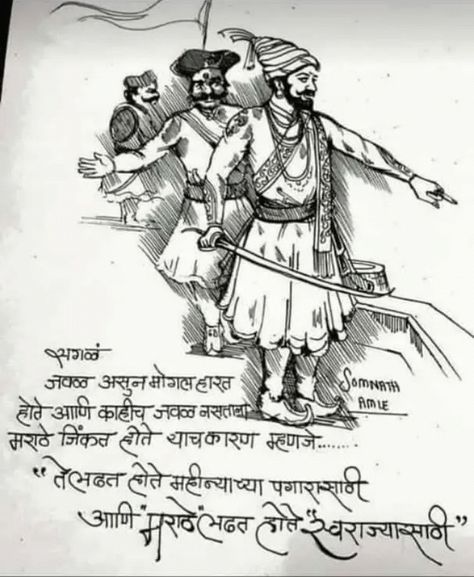 सगळं
जवळ असुन मोगल हारत
होते आणि काहीच जवळ नसताना
मराठे जिंकत होते याच कारण म्हणजे.......
"ते लढत होते महीन्याच्या पगारासाठी
आणि "मराठे" लढत होते "स्वराज्यासाठी"
SOMNATH
AMLE